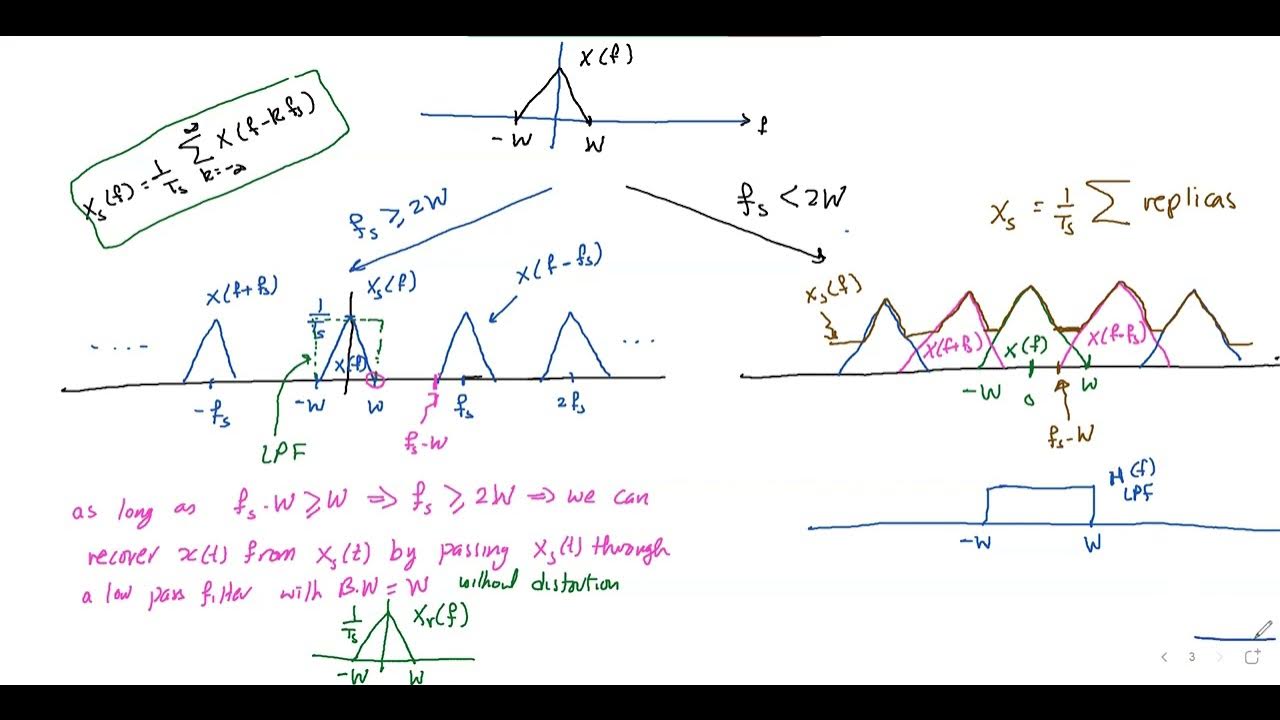 X(f)
-W W f
X_s(f) = 1/T_s ∑_{k=-∞}^{∞} X(f-k f_s)
f_s ≥ 2W
f_s < 2W
X_s = 1/T_s ∑ replicas
X(f+f_s)
1/T_s
X_s(f)
X(f-f_s)
....
X(f)
...
-f_s -W W f_s 2f_s
LPF
f_s-W
X_s(f)
X(f+f_s) X(f) X(f-f_s)
-W 0 W
f_s-W
H(f)
LPF
-W W
as long as f_s-W ≥ W ⇒ f_s ≥ 2W ⇒ we can
recover x(t) from x_s(t) by passing x_s(t) through
a low pass filter with B.W = W without distortion
1/T_s X_r(f)
-W W
3